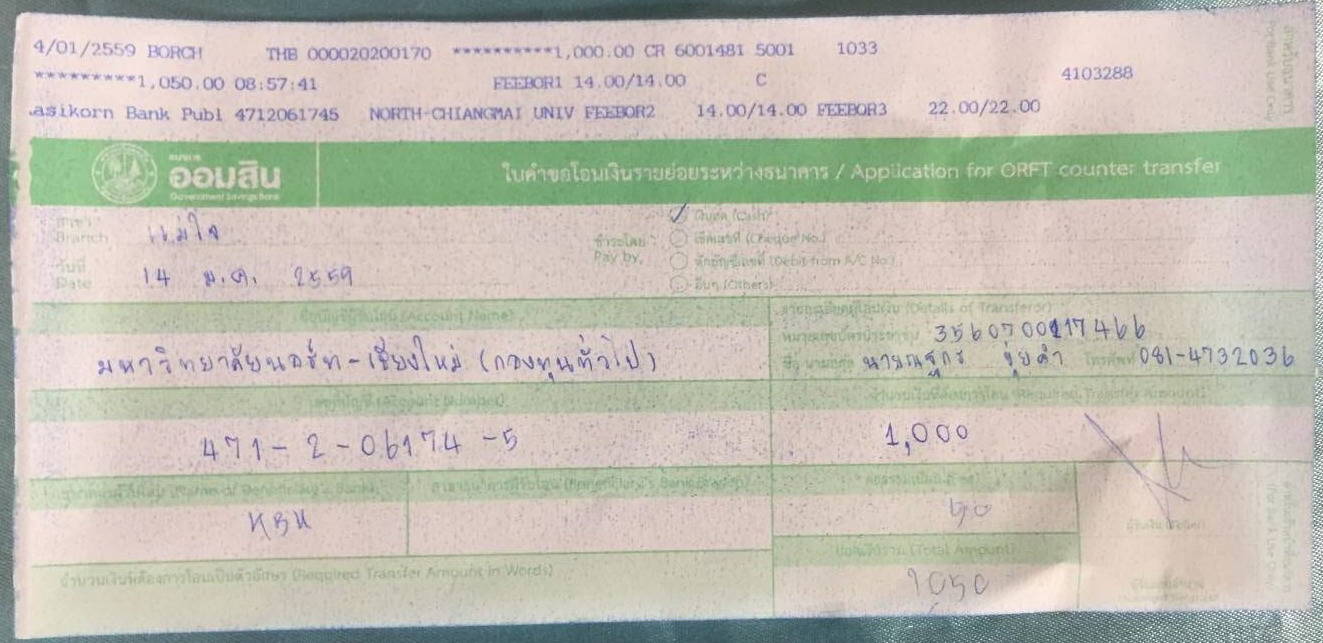 4/01/2559 BORCH THB 000020200170 **********1,000.00 CR 6001481 5001 1033
*********1,050.00 08:57:41 FEEBOR1 14.00/14.00 C 4103288
asikorn Bank Publ 4712061745 NORTH-CHIANGMAI UNIV FEEBOR2 14.00/14.00 FEEBOR3 22.00/22.00
ธนาคาร
ออมสิน
Government Savings Bank
ใบคำขอโอนเงินรายย่อยระหว่างธนาคาร / Application for ORFT counter transfer
สาขา
Branch แม่โจ้
วันที่
Date 14 ม.ค. 2559
ชำระโดย
Pay by.
เงินสด (Cash)
เช็คเลขที่ (Cheque No.)
หักบัญชีเลขที่ (Debit from A/C No.)
อื่นๆ (Others)
ชื่อบัญชีผู้รับโอน (Account Name)
มหาวิทยาลัยนอร์ท-เชียงใหม่ (กองทุนทั่วไป)
รายละเอียดผู้โอนเงิน (Details of Transferor)
หมายเลขบัตรประชาชน 3560700117466
ชื่อ นามสกุล นายณฐกร โทรศัพท์ 081-4732036
เลขที่บัญชี (Account Number)
471-2-06174-5
จำนวนเงินที่ต้องการโอน (Required Transfer Amount)
1,000
KBK
ค่าธรรมเนียม
50
(Total Amount)
1050
จำนวนเงินที่ต้องการโอนเป็นตัวอักษร (Required Transfer Amount in Words)